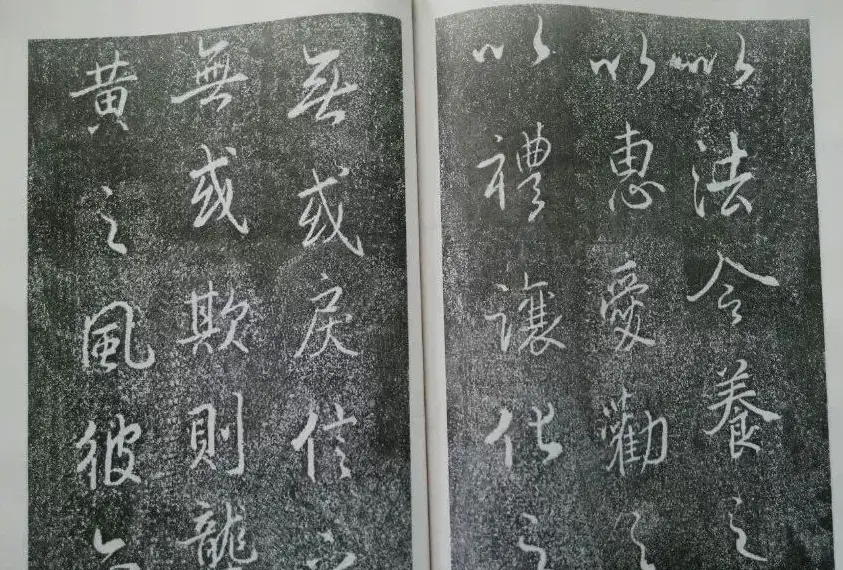 以法令養之
以惠愛勸之
以禮讓化之
無或戾信
無或欺則龍
黃之風彼